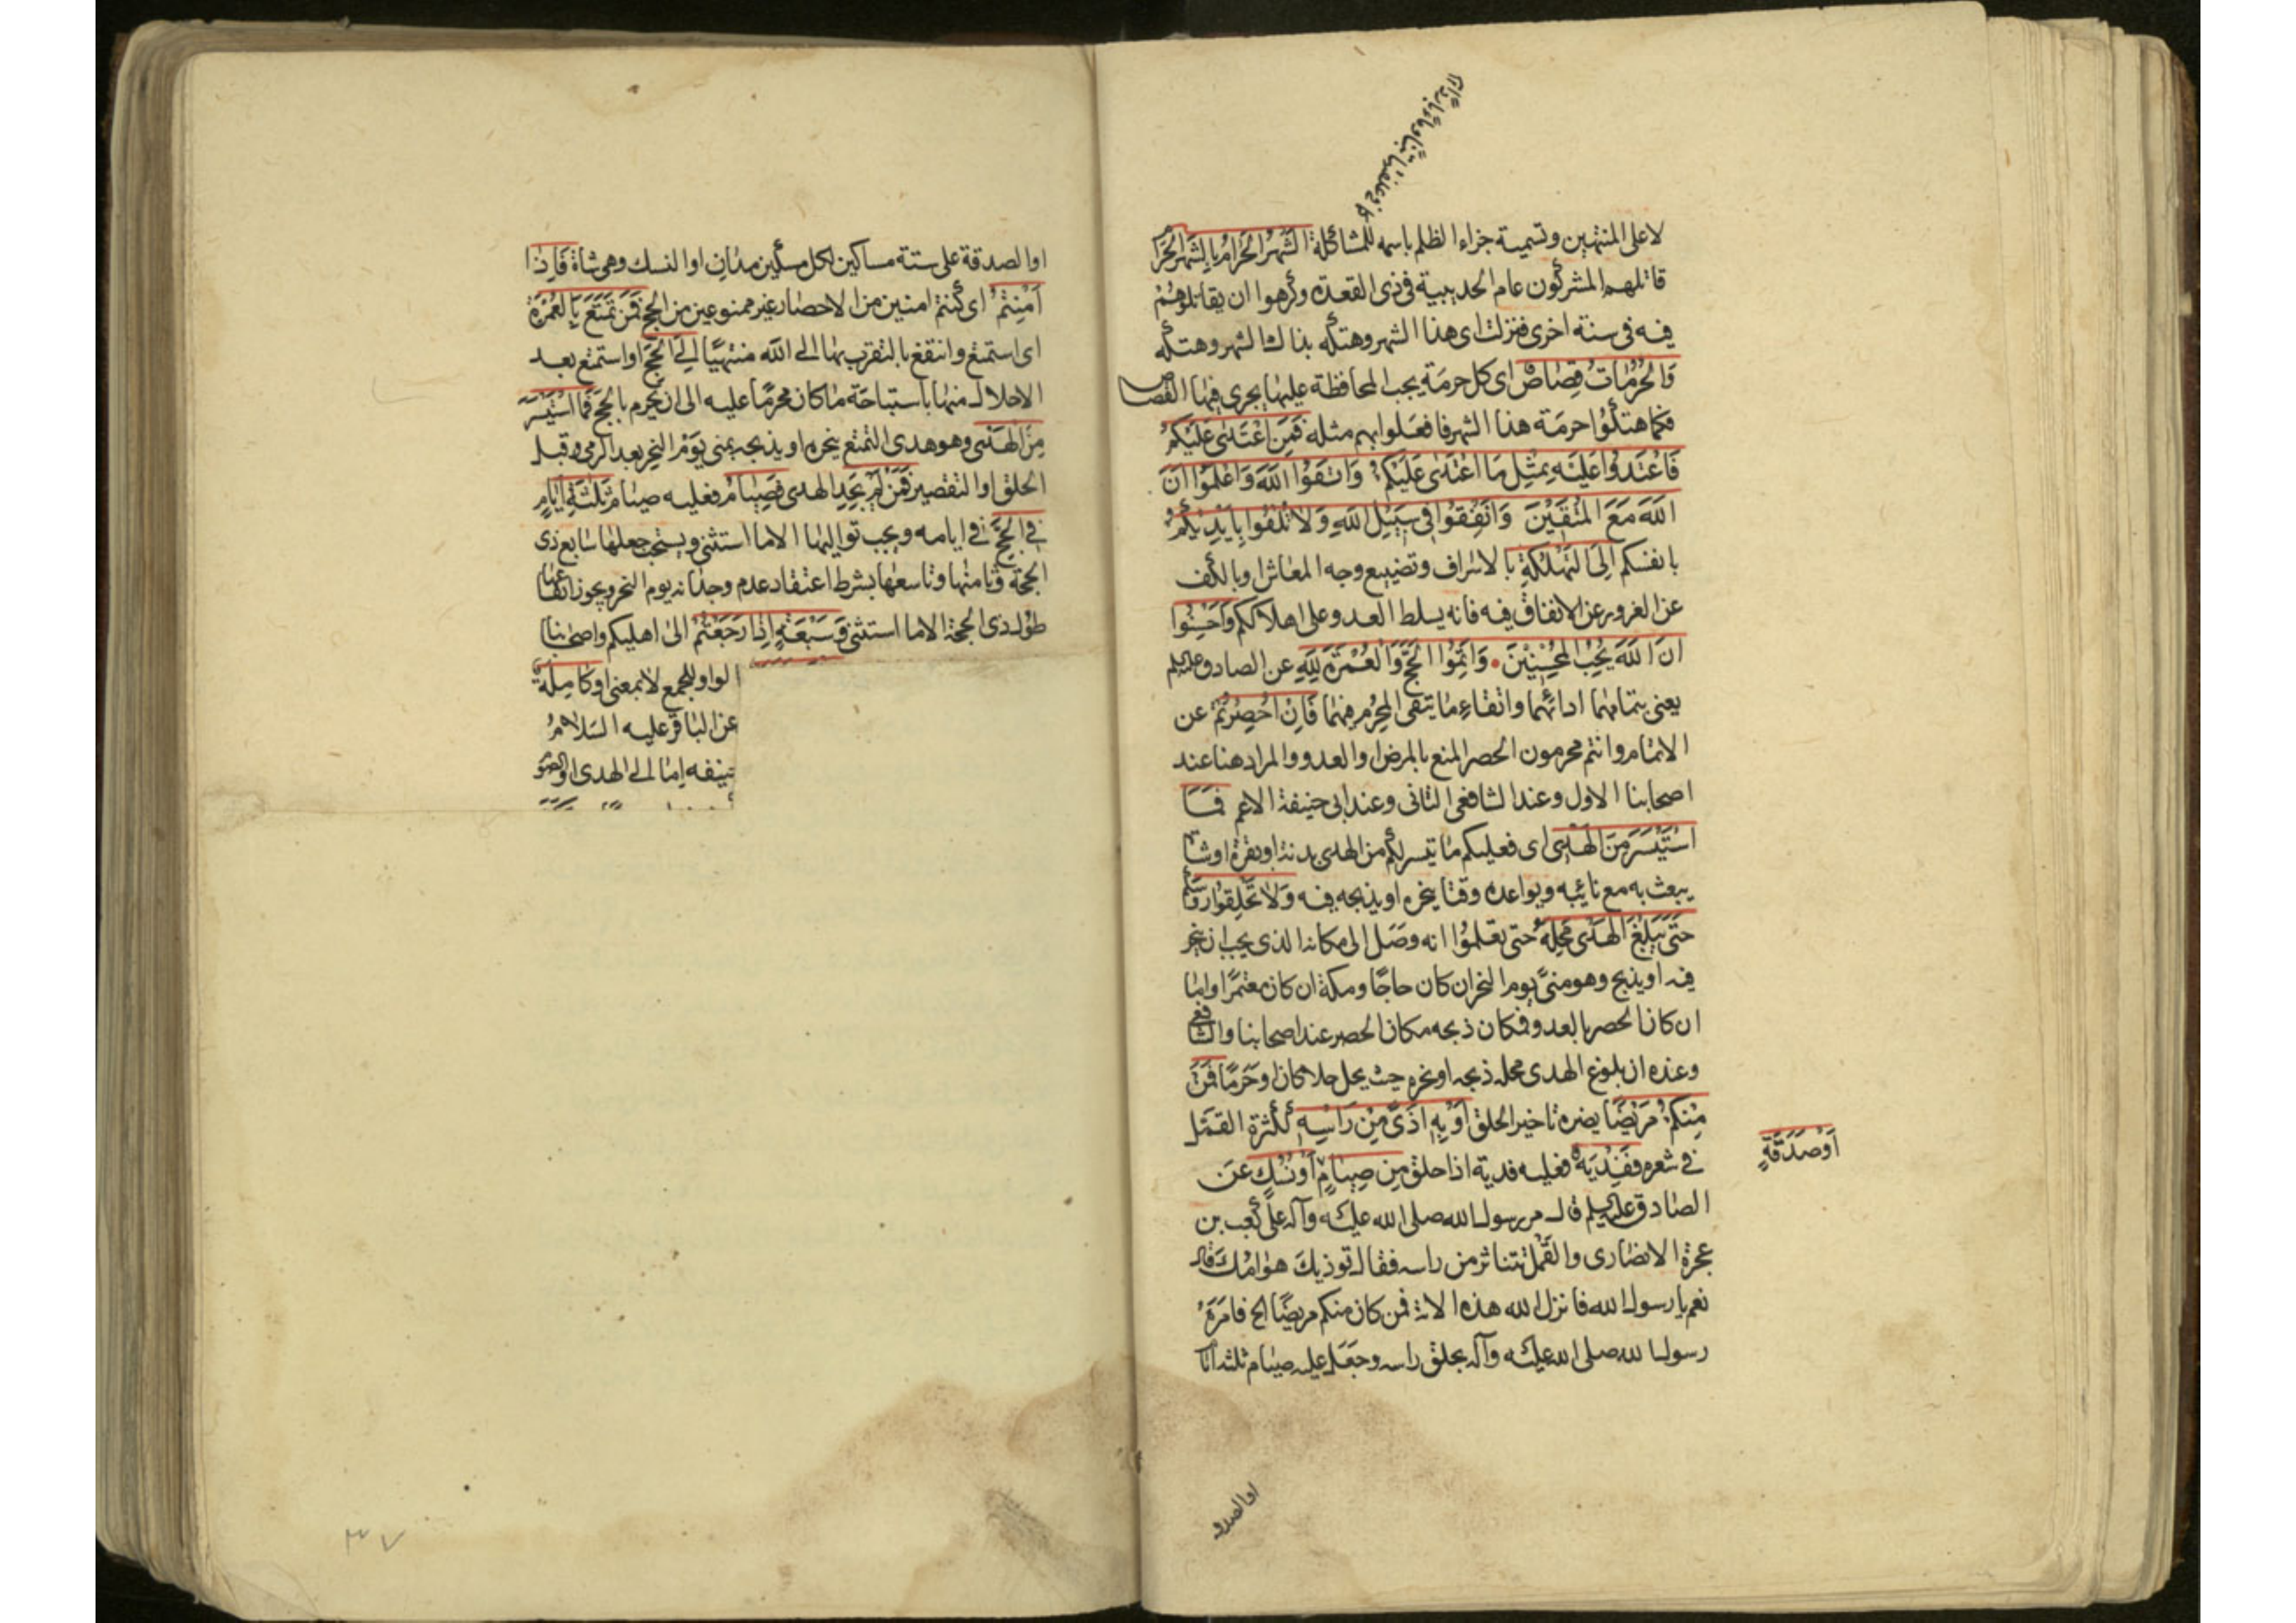 لا على المنتهين وتسمية جزاء الظلم باسمه للمشاكلة الشَّهْرُ الْحَرَامُ بِالشَّهْرِ الْحَرَامِ
قاتلهم المشركون عام الحديبية فى ذى القعدة وكرهوا ان يقاتلوهم
فيه فى سنة اخرى فنزلت اى هذا الشهر وهتكه بذاك الشهر وهتكه
وَالْحُرُمَاتُ قِصَاصٌ اى كل حرمة يجب المحافظة عليها يجرى فيها القصاص
فكما هتكوا حرمة هذا الشهر فافعلوا بهم مثله فَمَنِ اعْتَدَى عَلَيْكُمْ
فَاعْتَدُوا عَلَيْهِ بِمِثْلِ مَا اعْتَدَى عَلَيْكُمْ وَاتَّقُوا اللَّهَ وَاعْلَمُوا اَنَّ
اللَّهَ مَعَ الْمُتَّقِينَ وَاَنْفِقُوا فِى سَبِيلِ اللَّهِ وَلَا تُلْقُوا بِاَيْدِيكُمْ
بانفسكم اِلَى التَّهْلُكَةِ بالاسراف وتضييع وجه المعاش او بالكف
عن الغرور عن الانفاق فيه فانه يسلط العدو على اهلاككم وَاَحْسِنُوا
اِنَّ اللَّهَ يُحِبُّ الْمُحْسِنِينَ وَاَتِمُّوا الْحَجَّ وَالْعُمْرَةَ لِلَّهِ عن الصادق عليه السلم
يعنى بتمامهما ادائهما واتقاء ما يتقى المحرم فيهما فَاِنْ اُحْصِرْتُمْ عن
الاتمام وانتم محرمون الحصر المنع بالمرض او العدو والمراد هنا عند
اصحابنا الاول وعند الشافعى الثانى وعند ابى حنيفة الاعم فَمَا
اسْتَيْسَرَ مِنَ الْهَدْىِ اى فعليكم ما تيسر لكم من الهدى بدنة او بقرة او شاة
يبعث به مع نائبه ويواعده وقتا ينحره او يذبحه فيه وَلَا تَحْلِقُوا رُؤُسَكُمْ
حَتَّى يَبْلُغَ الْهَدْىُ مَحِلَّهُ حتى تعلموا انه وصل الى مكانه الذى يجب ان ينحر
فيه او يذبح وهو منى يوم النحر ان كان حاجا ومكة ان كان معتمرا واما
ان كان الحصر بالعدو فمكان ذبحه مكان الحصر عند اصحابنا والشافعى
وعنده ان بلوغ الهدى محله ذبحه او نحره حيث يحل حلا كان او حرما فَمَنْ
مِنْكُمْ مَرِيضًا يضره تاخير الحلق اَوْ بِهِ اَذًى مِنْ رَاْسِهِ لكثرة القمل
فى شعره فَفِدْيَةٌ فعليه فدية اذا حلق مِنْ صِيَامٍ اَوْ نُسُكٍ عن
اَوْ صَدَقَةٍ
الصادق عليه السلم قال مر رسول الله صلى الله عليه وآله على كعب بن
عجرة الانصارى والقمل تتناثر من راسه فقال توذيك هوامك قال
نعم يا رسول الله فانزل الله هذه الاية فمن كان منكم مريضا الخ فامره
رسول الله صلى الله عليه وآله بحلق راسه وجعل عليه صيام ثلثة ايام
او الصدقة
او الصدقة على ستة مساكين لكل مسكين مدان او النسك وهى شاة فَاِذَا
اَمِنْتُمْ اى كنتم امنين من الاحصار غير ممنوعين من الحج فَمَنْ تَمَتَّعَ بِالْعُمْرَةِ
اى استمتع وانتفع بالتقرب بها الى الله منتهيا اِلَى الْحَجِّ او استمتع بعد
الاحلال منها باستباحة ما كان محرما عليه الى ان يحرم بالحج فَمَا اسْتَيْسَرَ
مِنَ الْهَدْىِ وهو هدى التمتع ينحره او يذبحه بمنى يوم النحر بعد الرمى وقبل
الحلق او التقصير فَمَنْ لَمْ يَجِدِ الهدى فَصِيَامُ فعليه صيام ثَلَثَةِ اَيَّامٍ
فِى الْحَجِّ فى ايامه ويجب تواليها الا ما استثنى ويستحب جعلها سابع ذى
الحجة وثامنها وتاسعها بشرط اعتقاد عدم وجدانه يوم النحر ويجوز ايقاعها
طول ذى الحجة الا ما استثنى وَسَبْعَةٍ اِذَا رَجَعْتُمْ الى اهليكم واصحابنا
الواو للجمع لا بمعنى او كَامِلَةٌ
عن الباقر عليه السلام
بنفيه اما الى الهدى او الصوم
٣٧